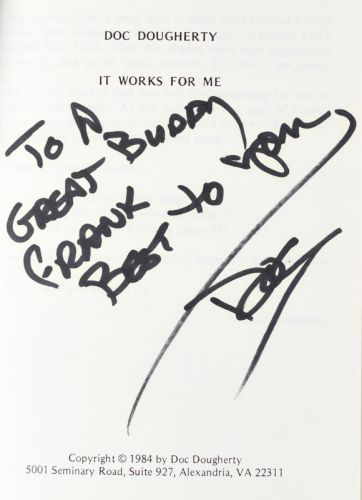 DOC DOUGHERTY
IT WORKS FOR ME
TO A
GREAT BUDDY
FRANK
BEST to you
Doc
Copyright © 1984 by Doc Dougherty
5001 Seminary Road, Suite 927, Alexandria, VA 22311